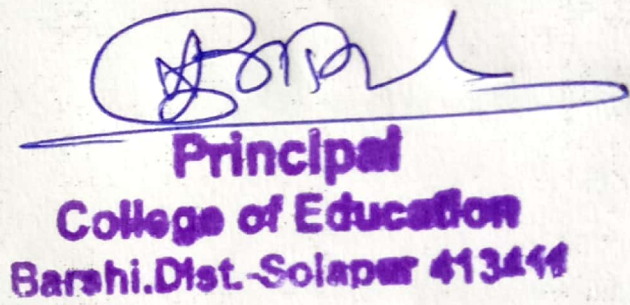 Principal
College of Education
Barshi.Dist.-Solapur